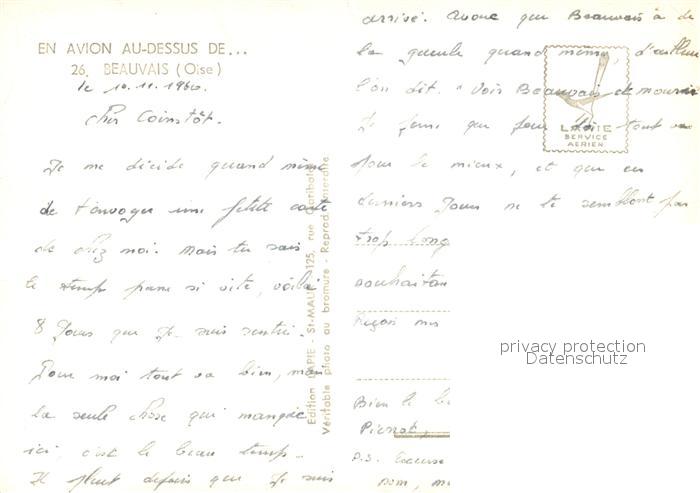 EN AVION AU-DESSUS DE...
26. BEAUVAIS (Oise)
le 10.11.1960.
Cher Coinstôt.
Je me décide quand même
de t'envoyer une petite carte
de chez moi. Mais tu sais
le temps passe si vite, voilà
8 jours que je suis rentré.
Pour moi tout va bien, mais
la seule chose qui manque
ici, c'est le beau temps.
Il pleut depuis que je suis
arrivé. Avoue que Beauvais a de
la gueule quand même, d'ailleurs
l'on dit. "Voir Beauvais et mourir
Je pense que pour toi tout va
pour le mieux, et que ces
derniers jours ne te semblent pas
trop long
souhaitan
Reçois mes
Bien le
Pierrot,
P.S. Excuse
nom,
Edition LAPIE - St-MAUR - 125, rue Garibaldi
Véritable photo au bromure - Reprod. interdite
LAPIE
SERVICE
AERIEN
privacy protection
Datenschutz